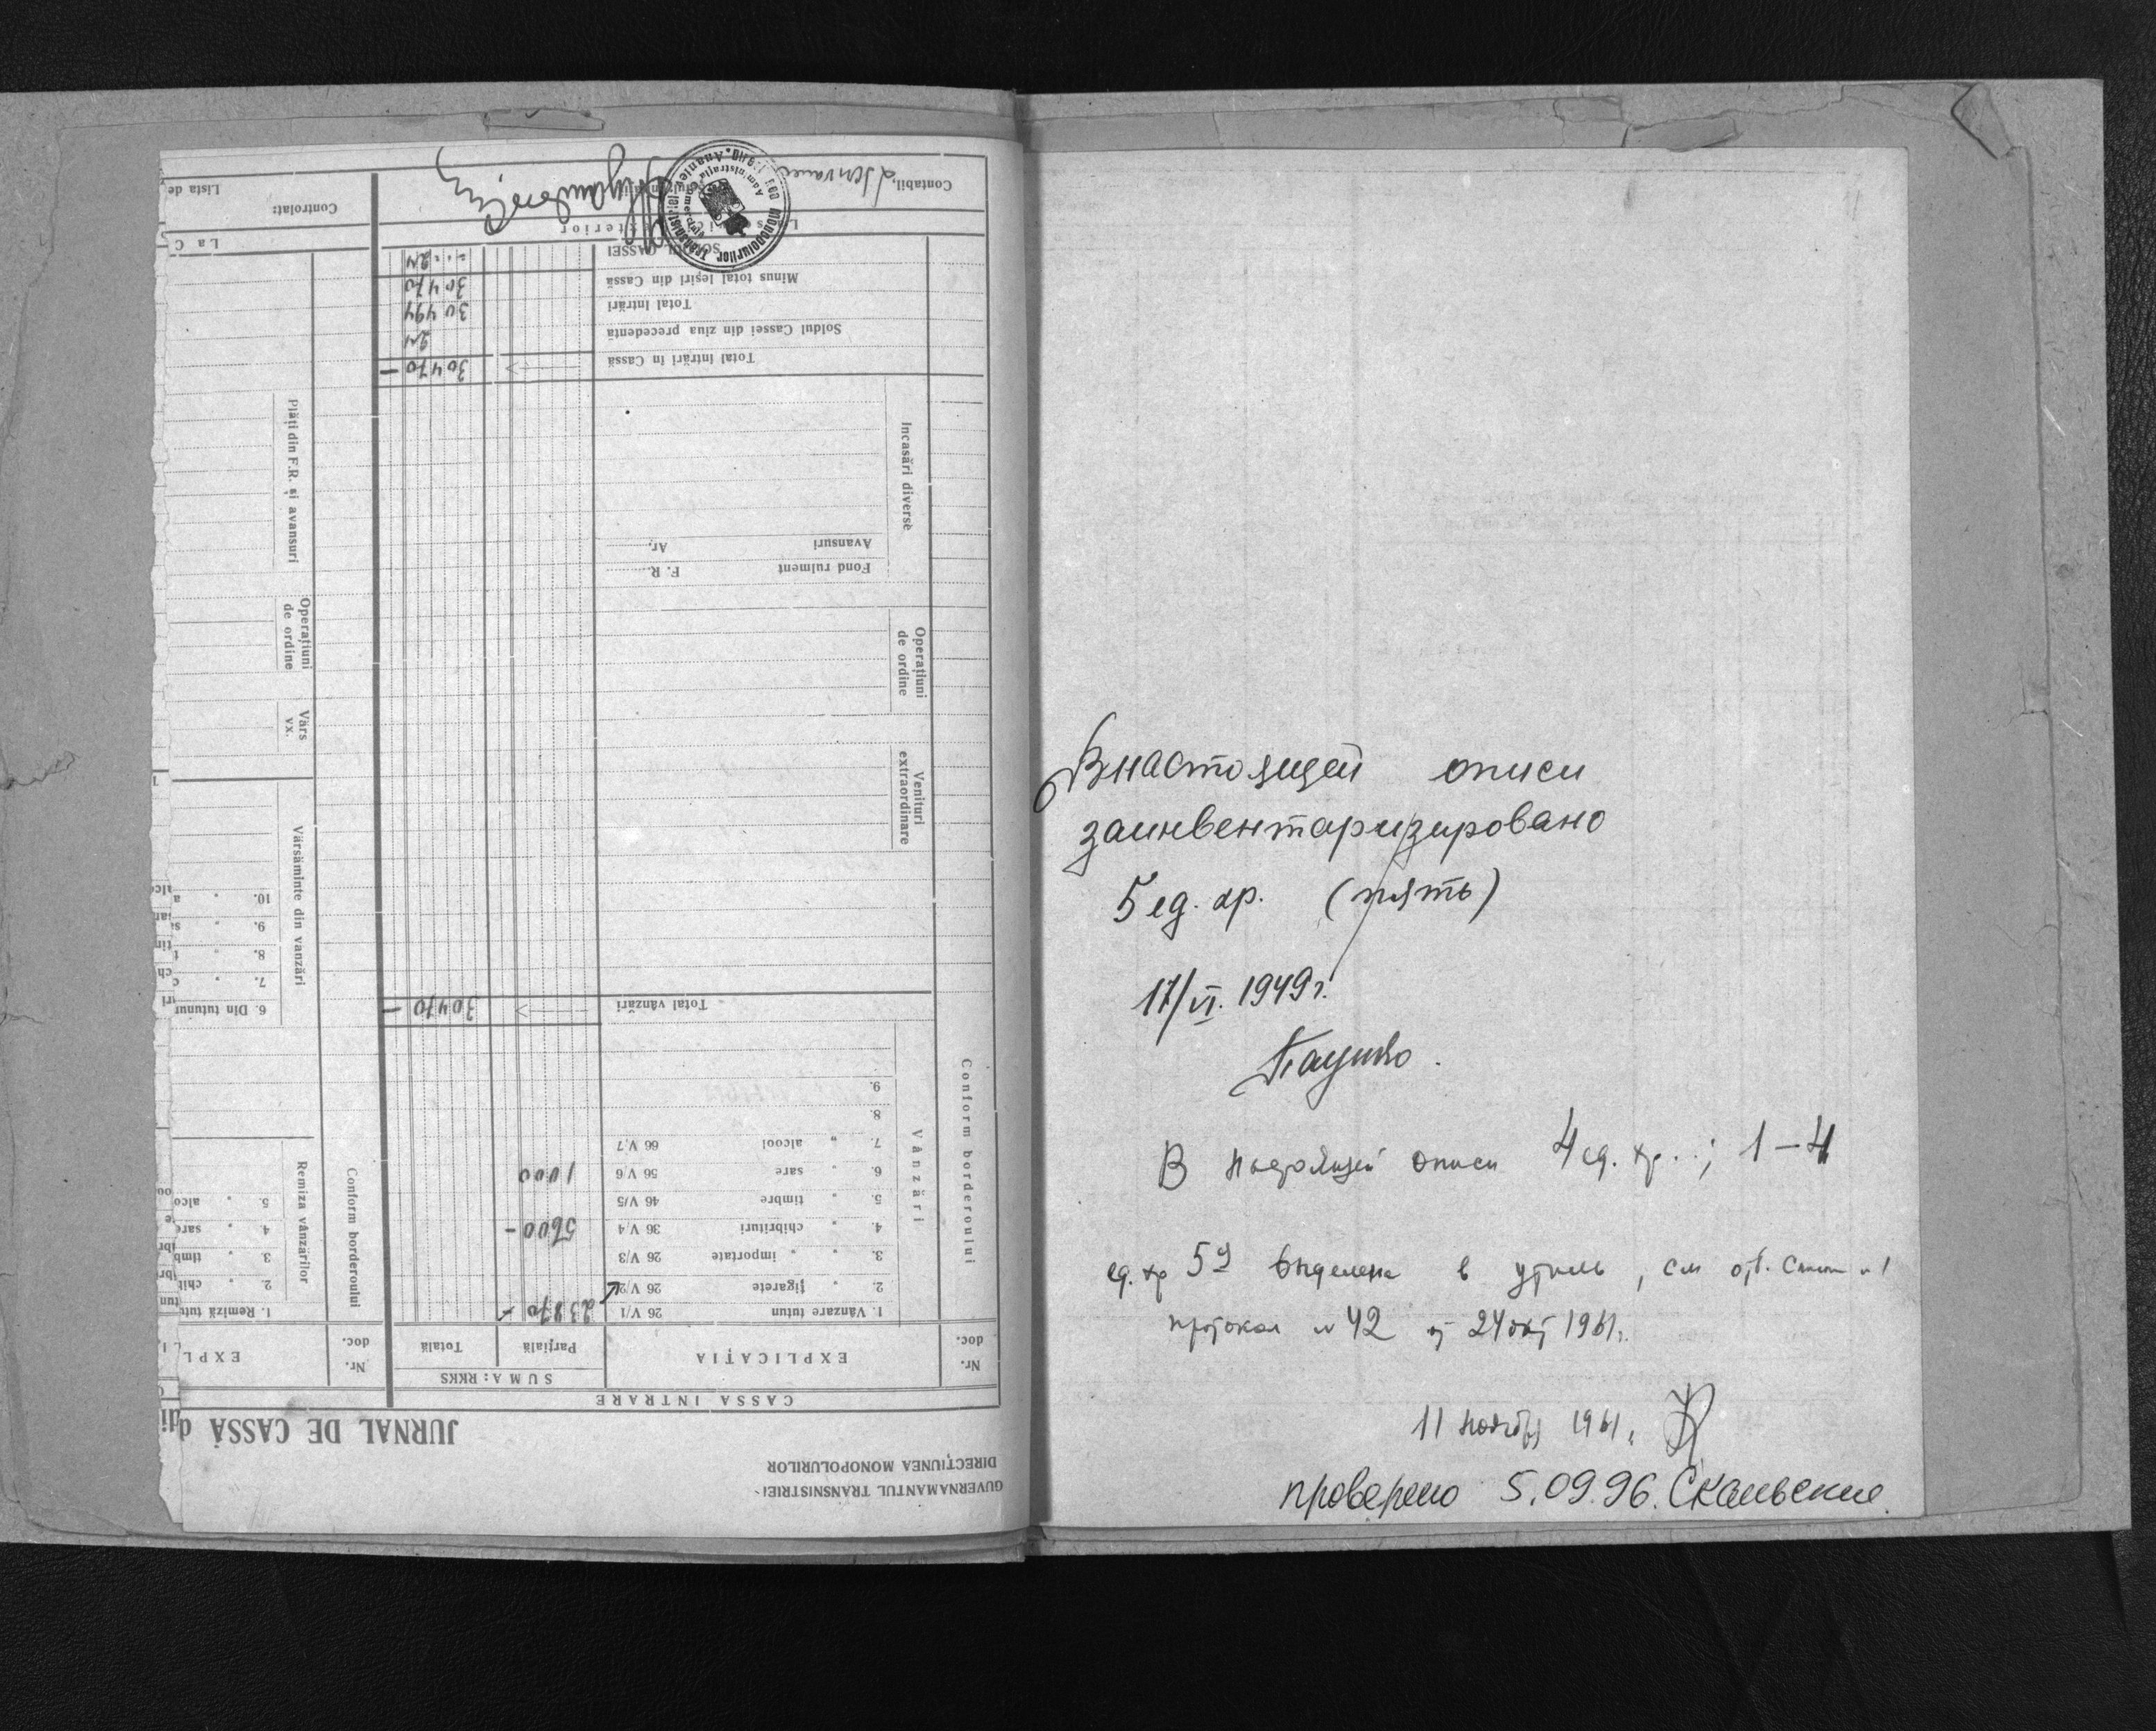 GUVERNAMANTUL TRANSNISTRIEI
DIRECȚIUNEA MONOPOLURILOR
JURNAL DE CASSĂ di
CASSA INTRARE
Nr. doc.
EXPLICAȚIA
SUMA: RKKS
Parțială
Totală
Nr. doc.
EXPL
Conform borderoului
Vânzări
1. Vânzare tutun 26 V/1 23870 -
2. „ țigarete 26 V/2
3. „ „ importate 26 V/3
4. „ chibrituri 36 V/4 5600 -
5. „ timbre 46 V/5
6. „ sare 56 V/6 1000
7. „ alcool 66 V/7
8.
9.
Total vânzări 30470 -
Venituri extraordinare
Operațiuni de ordine
Incasări diverse
Fond rulment F. R.
Avansuri Ar.
Total intrări în Cassă 30470 -
Soldul Cassei din ziua precedentă 24
Total intrări 30494
Minus total ieșiri din Cassă 30470
SOLDUL CASSEI 24
Contabil,
Conform borderoului
Remiza vânzărilor
1. Remiză tutu
2. „ chib
3. „ timb
4. „ sare
5. „ alco
Vărsăminte din vanzări
6. Din tutunur
7. „ c
8. „ t
9. „ s
10. „ a
Vărs vx.
Operațiuni de ordine
Plăți din F.R. și avansuri
La C
Controlat:
Lista de
В настоящей описи
заинвентаризировано
5 ед. хр. (пять)
17/VI. 1949 г.
В настоящей описи 4 ед. хр.; 1-4
ед. хр 5я выделена в утиль, см отб. список № 1
протокол № 42 от 24 окт 1961 г.
11 ноября 1961 г.
проверено 5.09.96.